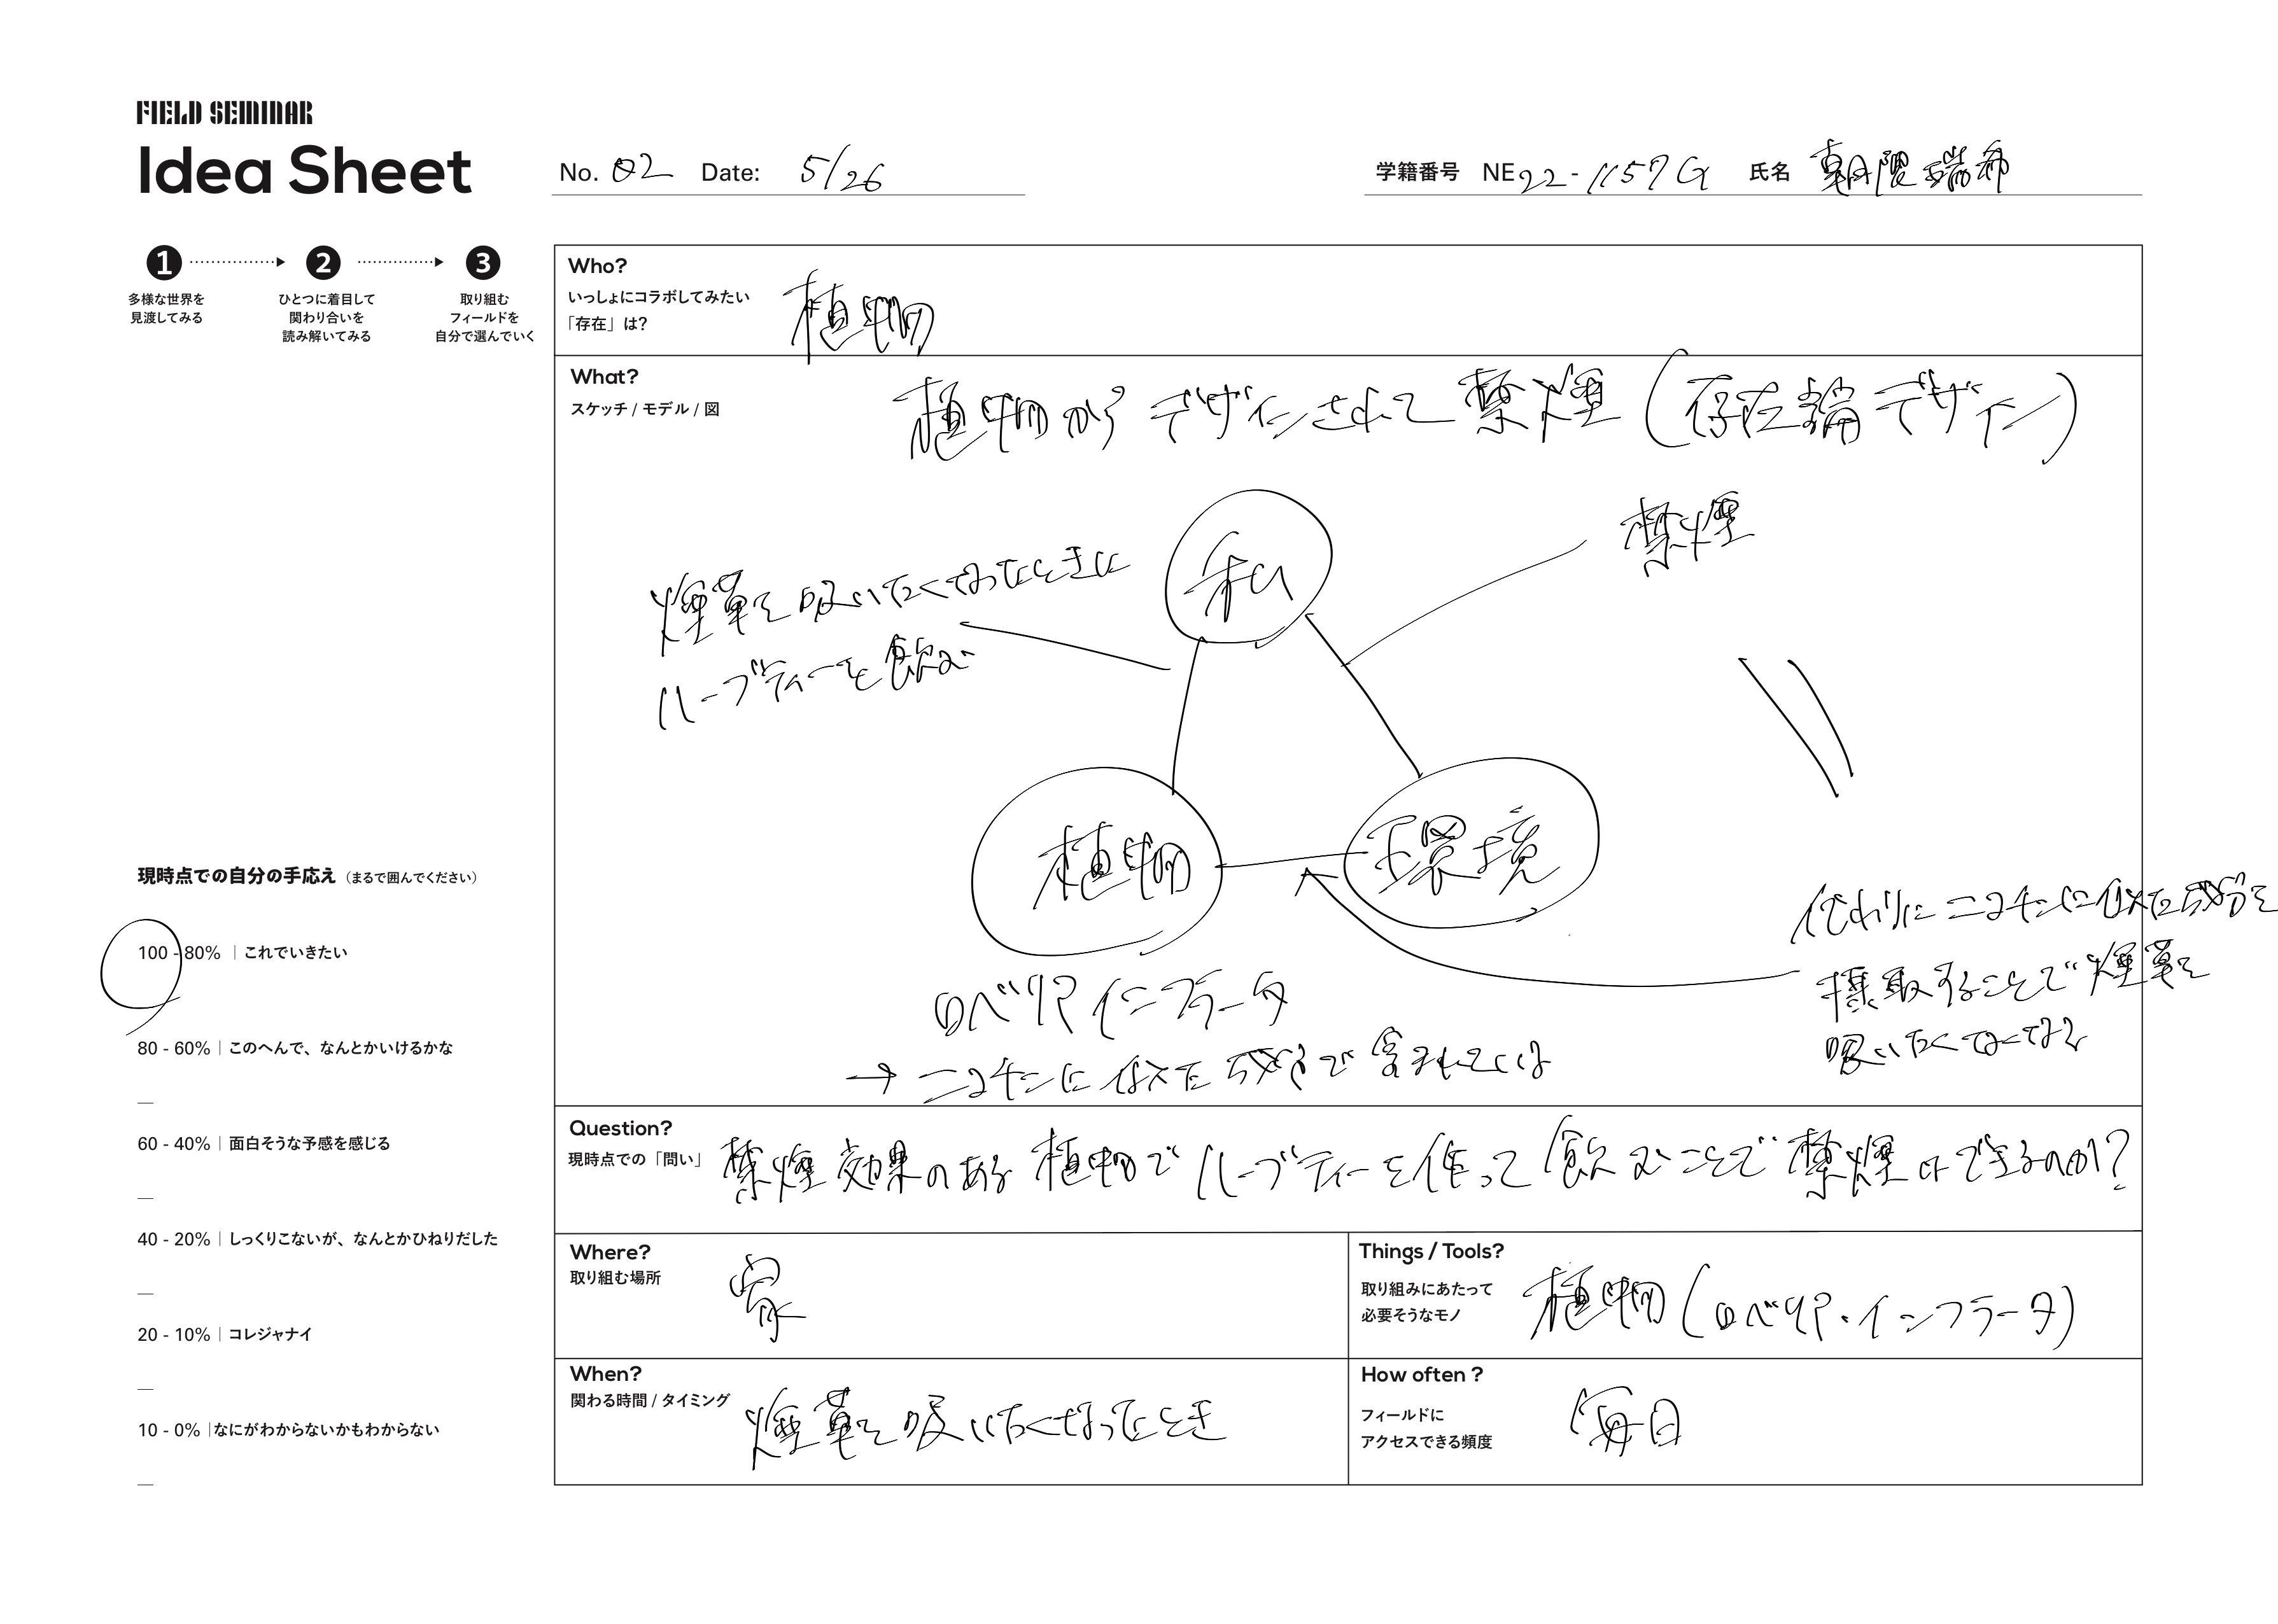 FIELD SEMINAR
Idea Sheet
No. 02 Date: 5/26
学籍番号 NE22-1157G 氏名 朝隈瑞希
1 2 3
多様な世界を
見渡してみる
ひとつに着目して
関わり合いを
読み解いてみる
取り組む
フィールドを
自分で選んでいく
Who?
いっしょにコラボしてみたい
「存在」は?
植物
What?
スケッチ / モデル / 図
植物からデザインされて禁煙(存在論デザイン)
私
禁煙
煙草を吸いたくなったときに
ハーブティーを飲む
植物
環境
ロベリアインフラータ
→ニコチンに似た成分で含まれている
代わりにニコチンに似た成分を
摂取することで煙草を
吸いたくなくなる
現時点での自分の手応え(まるで囲んでください)
100 - 80% | これでいきたい
80 - 60% | このへんで、なんとかいけるかな
—
60 - 40% | 面白そうな予感を感じる
—
40 - 20% | しっくりこないが、なんとかひねりだした
—
20 - 10% | コレジャナイ
—
10 - 0% | なにがわからないかもわからない
—
Question?
現時点での「問い」
禁煙効果のある植物でハーブティーを作って飲むことで禁煙ができるのか?
Where?
取り組む場所
家
Things / Tools?
取り組みにあたって
必要そうなモノ
植物(ロベリア・インフラータ)
When?
関わる時間 / タイミング
煙草を吸いたくなったとき
How often ?
フィールドに
アクセスできる頻度
毎日